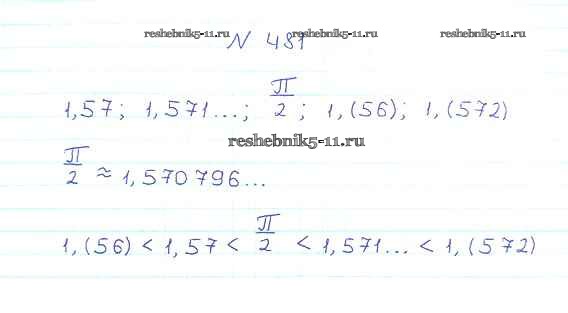 reshebnik5-11.ru reshebnik5-11.ru reshebnik5-11.ru
N 481
1,57; 1,571...; π/2; 1,(56); 1,(572)
reshebnik5-11.ru
π/2 ≈ 1,570796...
1,(56) < 1,57 < π/2 < 1,571... < 1,(572)